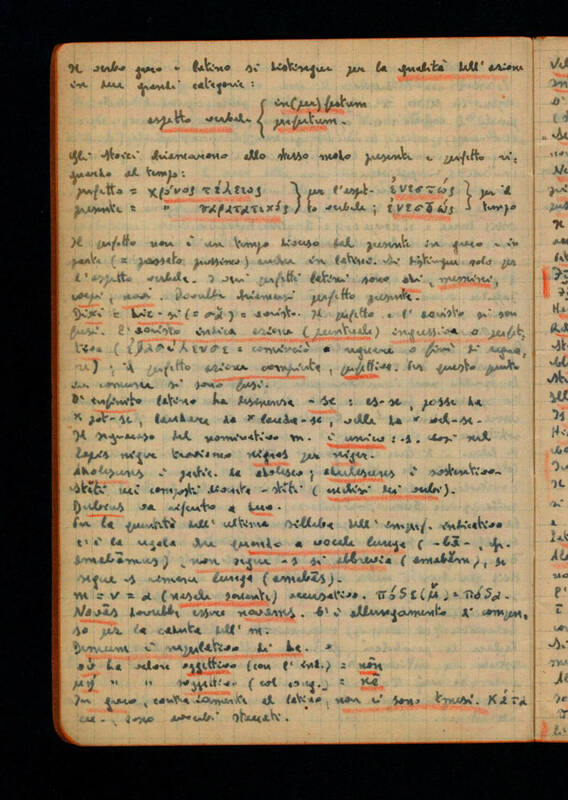 Il verbo greco e latino si distingue per la qualità dell'azione
in due grandi categorie:
aspetto verbale { in(per)fectum
perfectum.
Gli stoici chiamarono allo stesso modo presente e perfetto ri-
guardo al tempo:
perfetto = χρόνος τέλειος } per l'aspet- ἐνεστώς } per il
presente = " παρατατικός } to verbale; ἐνεστώς } tempo
Il perfetto non è un tempo diverso dal presente in greco e in
parte (= passato prossimo) anche in latino. Si distingue solo per
l'aspetto verbale. I veri perfetti latini sono odi, memini,
coepi, novi. Dovrebbe chiamarsi perfetto presente.
Dixi = dic-si (= σα) = aoristo. Il perfetto e l'aoristo si son
fusi. L'aoristo indica azione (puntuale) ingressiva o perfet-
tiva (ἐβασίλευσε = cominciò a regnare o finì di regna-
re); il perfetto azione compiuta, perfettiva. Per questo punto
in comune si sono fusi.
L'infinito latino ha desinenza -se: es-se, posse da
* pot-se, laudare da * lauda-se, velle da * vel-se.
Il segnacaso del nominativo m. è unico: -s. Così nel
Lapis niger troviamo nigros per niger.
Adolescens è partic. da adolesco; adulescens è sostantivo.
-stĕti nei composti diventa -stĭti (
Ducibus va riferito a
Per la quantità dell'ultima sillaba dell'imperf. indicativo
c'è la regola che quando a vocale lunga (-bā-,
amabāmus), non segue -s si abbrevia (amabăm), se
segue -s rimane lunga (amabās).
m = ν = α (nasale sonante) accusativo. πόδε(μ) = πόδα.
Novās dovrebbe essere novāms. C'è allungamento di compen-
so per la caduta dell'm.
è
οὐ ha valore oggettivo (con l'ind.) = nōn
μή " " soggettivo (col cong.) = nē
In greco, contrariamente al latino, non ci sono tmesi. κατα
ecc., sono vocaboli staccati.